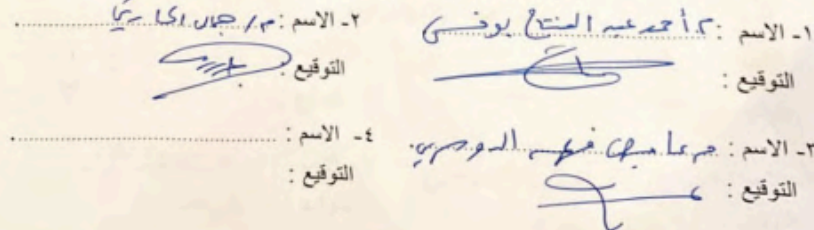 ١- الاسم : م. أحمد عبد الفتاح يونس
التوقيع :
٢- الاسم : م/ جمال الحارثي
التوقيع :
٣- الاسم : م. فهد الدوسري
التوقيع :
٤- الاسم :
التوقيع :